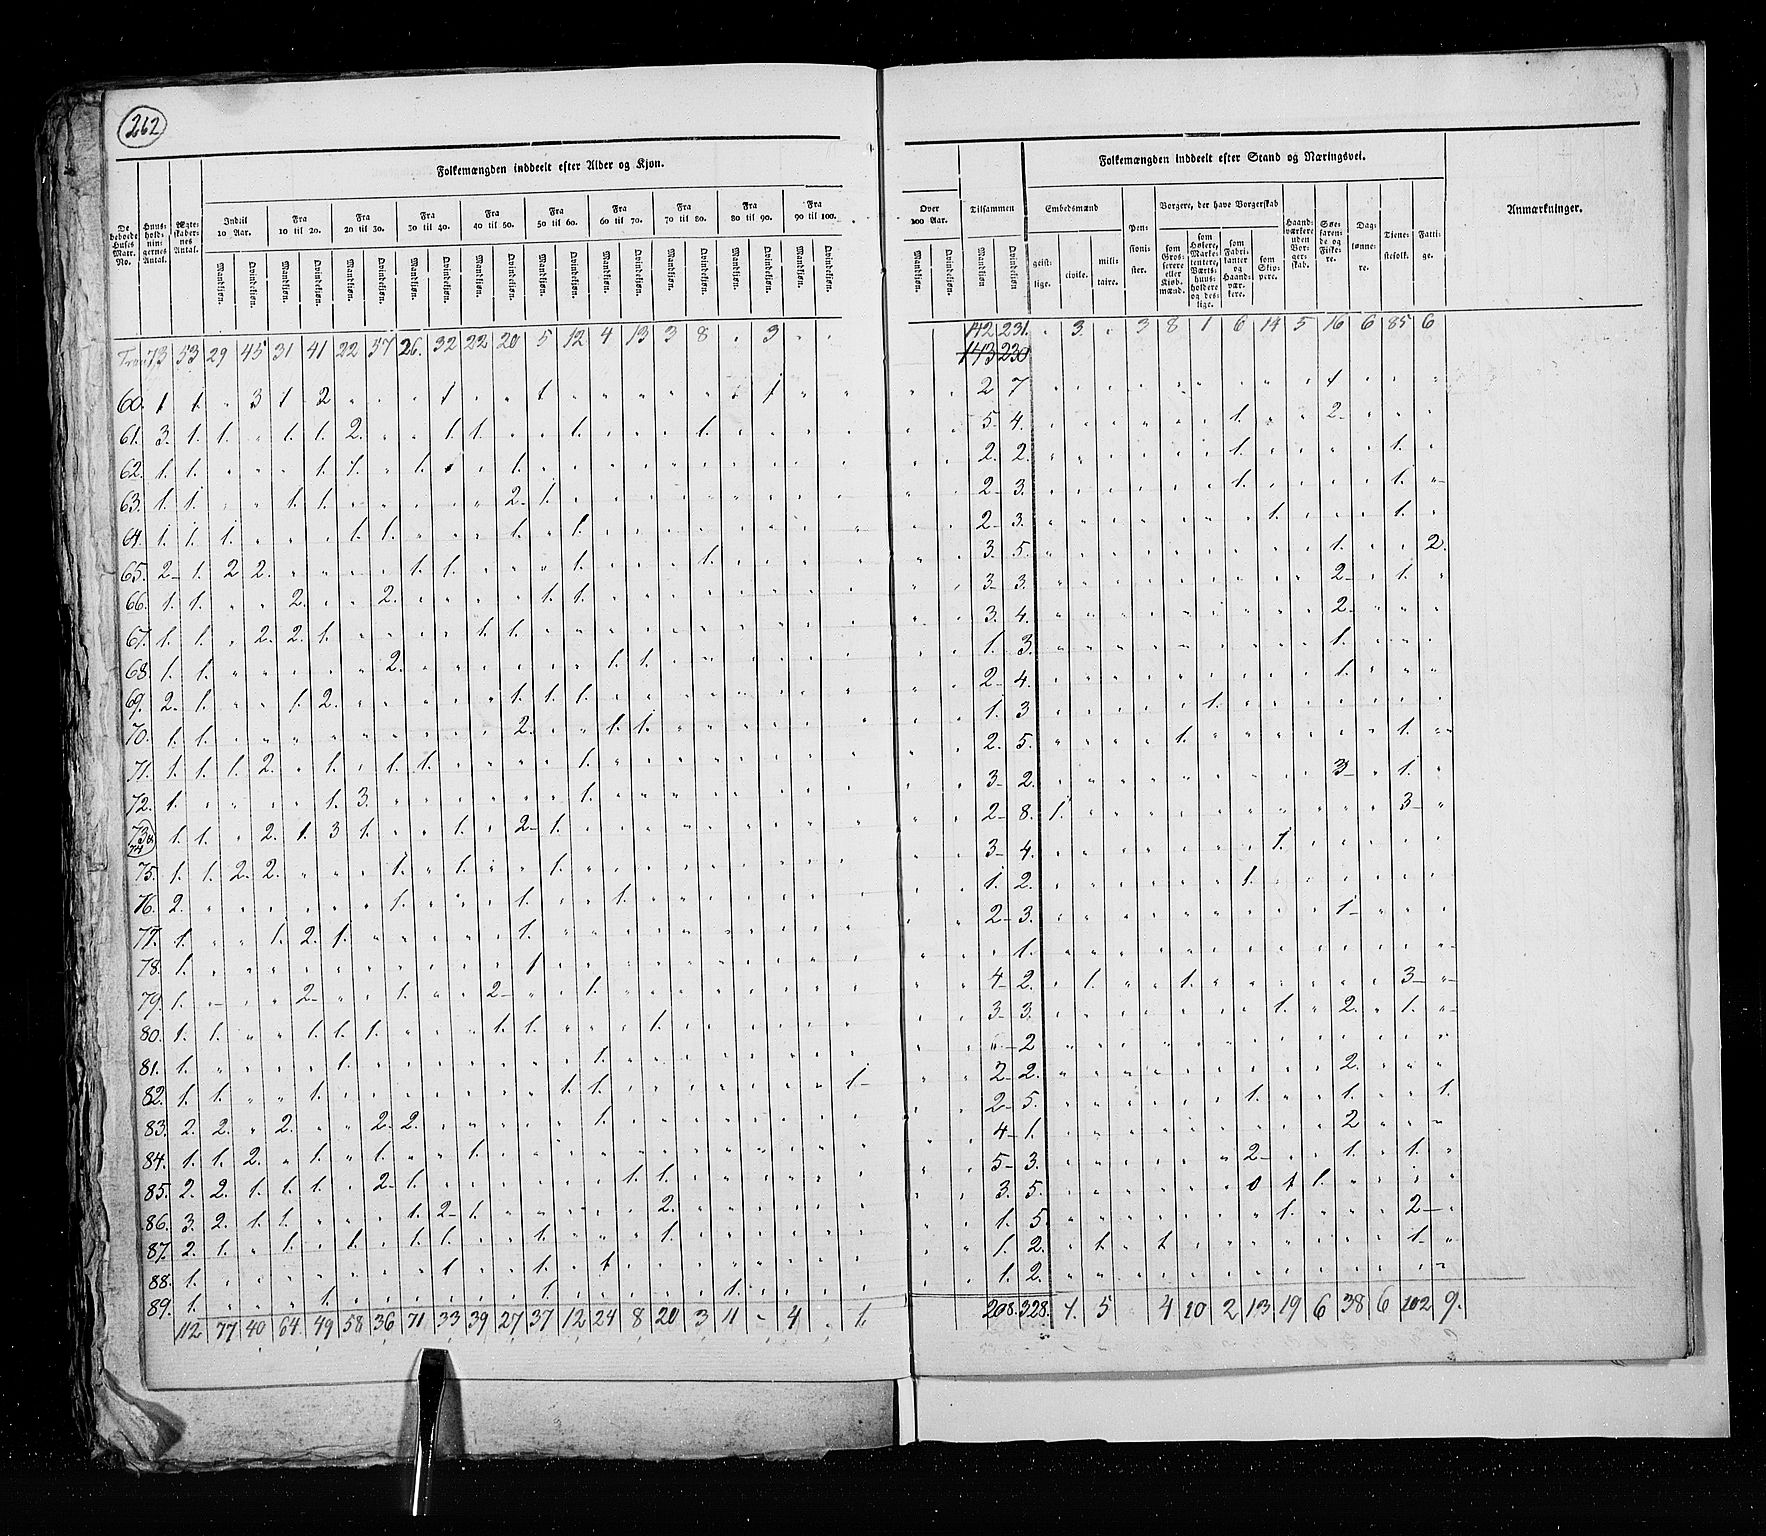 262
Folkemængden inddeelt efter Alder og Kjøn.
De beboede Huses Matr. No.
Huusholdningernes Antal.
Ægteskabernes Antal.
Indtil 10 Aar.
Fra 10 til 20.
Fra 20 til 30.
Fra 30 til 40.
Fra 40 til 50.
Fra 50 til 60.
Fra 60 til 70.
Fra 70 til 80.
Fra 80 til 90.
Fra 90 til 100.
Over 100 Aar.
Mandkjøn. Qvindekjøn.
Tilsammen
Mandkjøn. Qvindekjøn.
Folkemængden inddeelt efter Stand og Næringsvei.
Embedsmænd
geistlige. civile. militaire.
Pensionister.
Borgere, der have Borgerskab
som Grosserere eller Kjøbmænd.
som Høkere, Marketentere, Vertshuusholdere og deslige.
som Fabrikanter og Haandværkere.
som Skippere.
Haandværkere uden Borgerskab.
Søefarende og Fiskere.
Daglønnere.
Tienestefolk.
Fattige.
Anmærkninger.
73 53 29 45 31 41 22 57 26. 32 22 20 5 12 4 13 3 8 . 3 . . 142 231. . 3. . 3 8 1 6 14 5 16 6 85 6
143 230
60. 1 1. " 3 1 2 2 7
61. 3. 1. 1. " 1. 1. 2. 1. 1. 1. 1. 5. 4. 1. 2
62. 1. 1. 1. 1. 1. 1. 2. 2. 1. 1.
63. 1. 1. 1. 1. 2. 1. 2. 3. 1. 1.
64. 1. 1. 1. 1. 1. 1. 1. 2. 3. 1. 1.
65. 2. 1. 2. 2. 1. 1. 1. 1. 3. 5. 1. 2.
66. 1. 1. 2. 2. 1. 1. 3. 3. 2. 1.
67. 1. 1. 2. 2. 1. 1. 1. 3. 4. 2.
68. 1. 1. 2. 1. 1. 1. 3. 1.
69. 2. 1. 1. 2. 1. 1. 1. 2. 4. 1.
70. 1. 1. 2. 1. 1. 1. 3 1.
71. 1. 1. 1. 2. 1. 1. 1. 1. 2. 5. 1. 1.
72. 1. 1. 3. 1. 3. 2. 3 1.
73 & 74 1. 1. 2. 1. 3 1. 1. 2. 1. 2. 8. 1. 3
75. 1. 1. 2. 2. 1. 1. 1. 3. 4. 1.
76. 2. 1. 1. 1. 1. 2. 1.
77. 1. 1. 2. 1. 1. 2. 3. 1
78. 1. 1 1.
79. 1. 2 1. 2 1. 4 2. 1. 1. 3
80. 1. 1. 1. 1. 1. 1. 1. 1. 3. 3. 1. 2. 1.
81. 1. 1. 1. " 2
82. 1. 1. 1. 1. 1. 1 2. 2. 2.
83. 2. 2. 2. 2. 2. 1. 2. 5. 1. 1. 1.
84. 1. 1. 2. 1. 1. 1. 4. 1. 2
85. 2. 2. 1. 1. 1. 2. 1. 1. 1. 5. 3. 2 1. 1.
86. 3. 2. 1. 1. 1. 2. 1. 2. 3. 5. 0 1 1.
87. 2. 1. 1. 1. 1. 1. 1. 1. 1. 5. 1. 2
88. 1. 1 1. 1 1. 2. 1. 1 1.
89. 1. 1. 1. 1. 1. 2.
112 77 40 64 49 58 36 71 33 39 27 37 12 24 8 20 3 11 - 4 . 1. 208. 328. 1. 5 4 10 2 13 19 6 38 6 102 9.